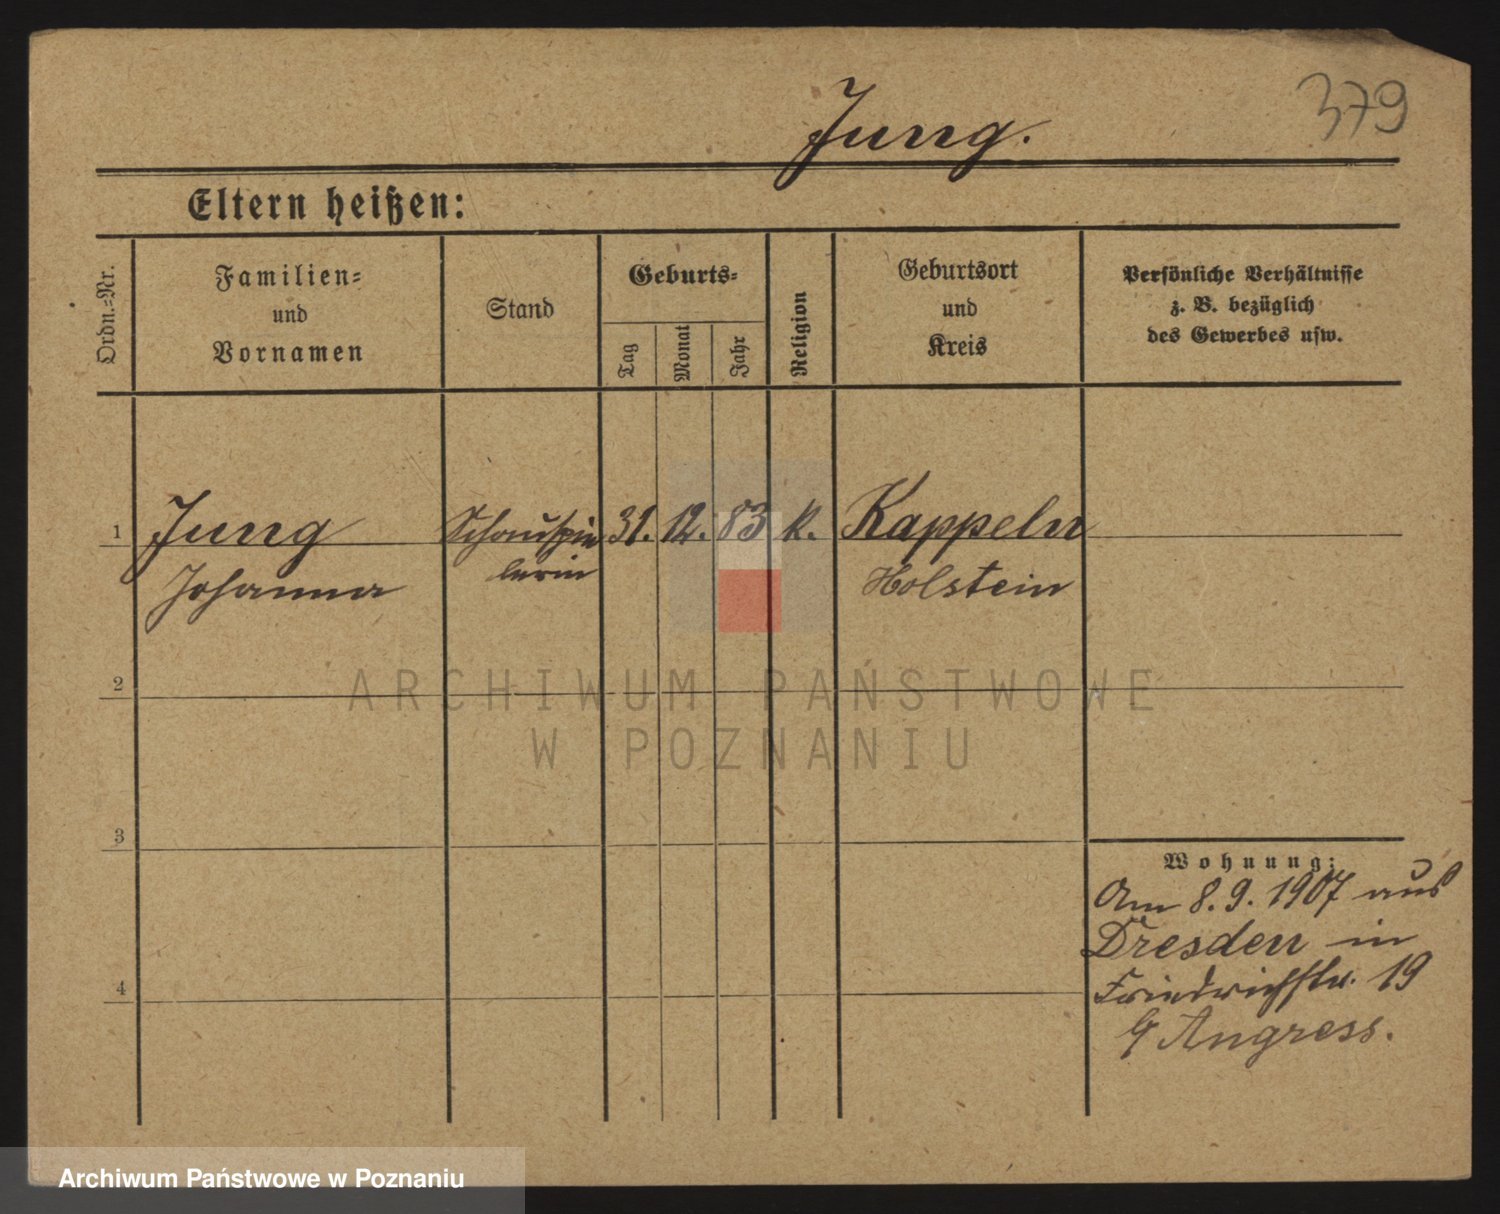 Jung.
379
Eltern heißen:
Ordn.-Nr.
Familien-
und
Vornamen
Stand
Geburts-
Tag
Monat
Jahr
Religion
Geburtsort
und
Kreis
Persönliche Verhältnisse
z. B. bezüglich
des Gewerbes usw.
1
Jung
Johanna
Schauspie
lerin
31.
12.
83
K.
Kappeln
Holstein
2
3
4
Wohnung:
Am 8.9.1907 aus
Dresden in
Friedrichstr. 19
Angress.
ARCHIWUM PAŃSTWOWE
W POZNANIU
Archiwum Państwowe w Poznaniu